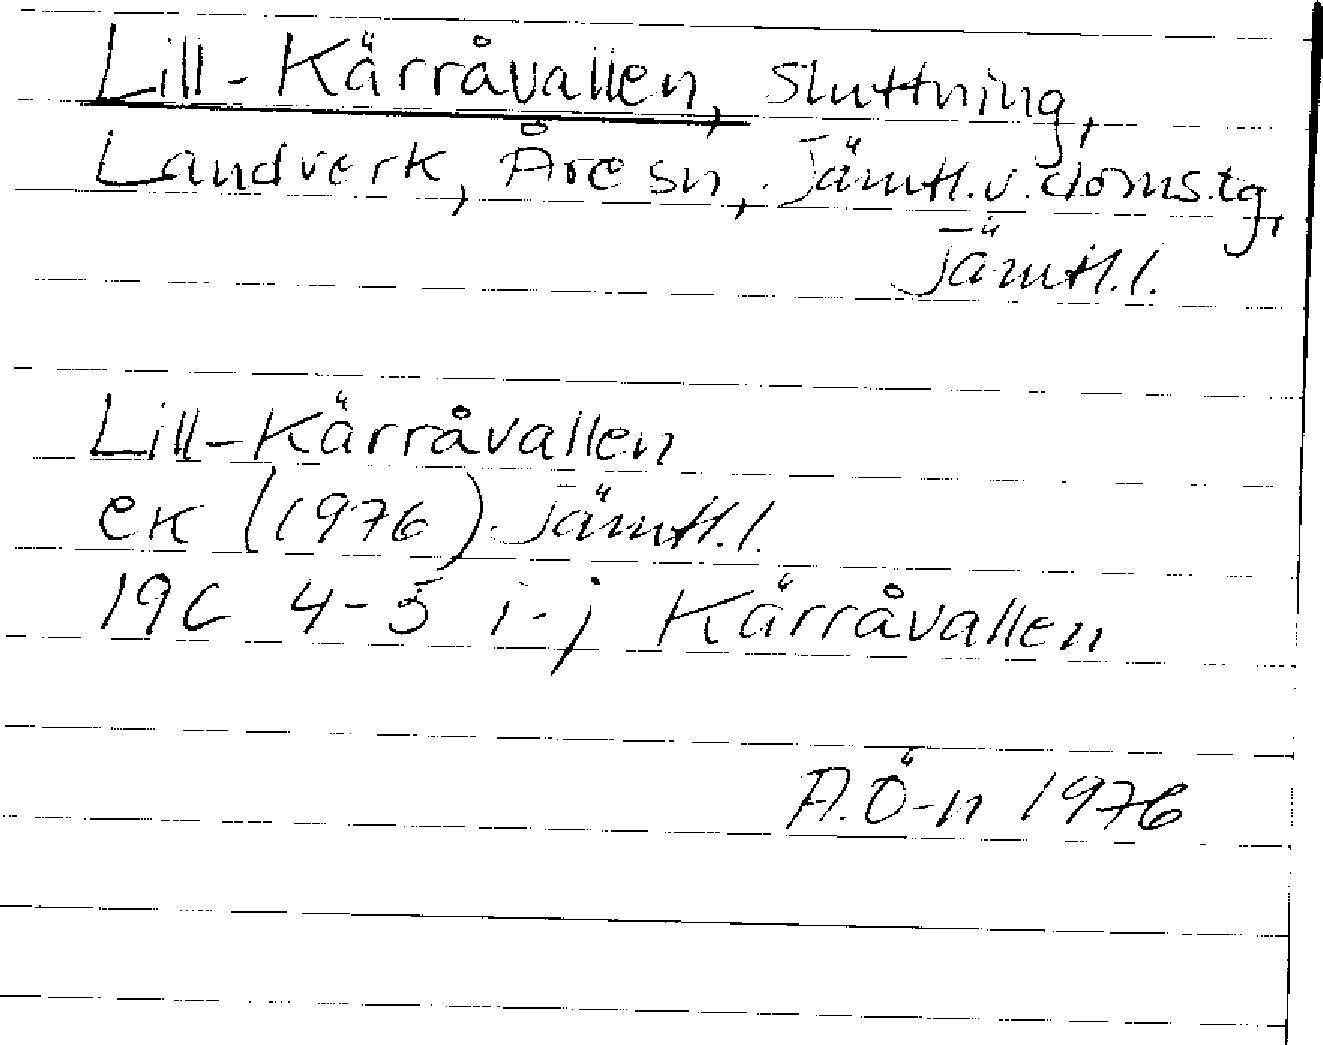 Lill-Kärråvallen, Sluttning,
Landverk, Åre sn, Jämtl.v.doms.tg,
Jämtl.l.
Lill-Kärråvallen
ek (1976) Jämtl.l.
19C 4-5 i-j Kärråvallen
A.Ö-n 1976